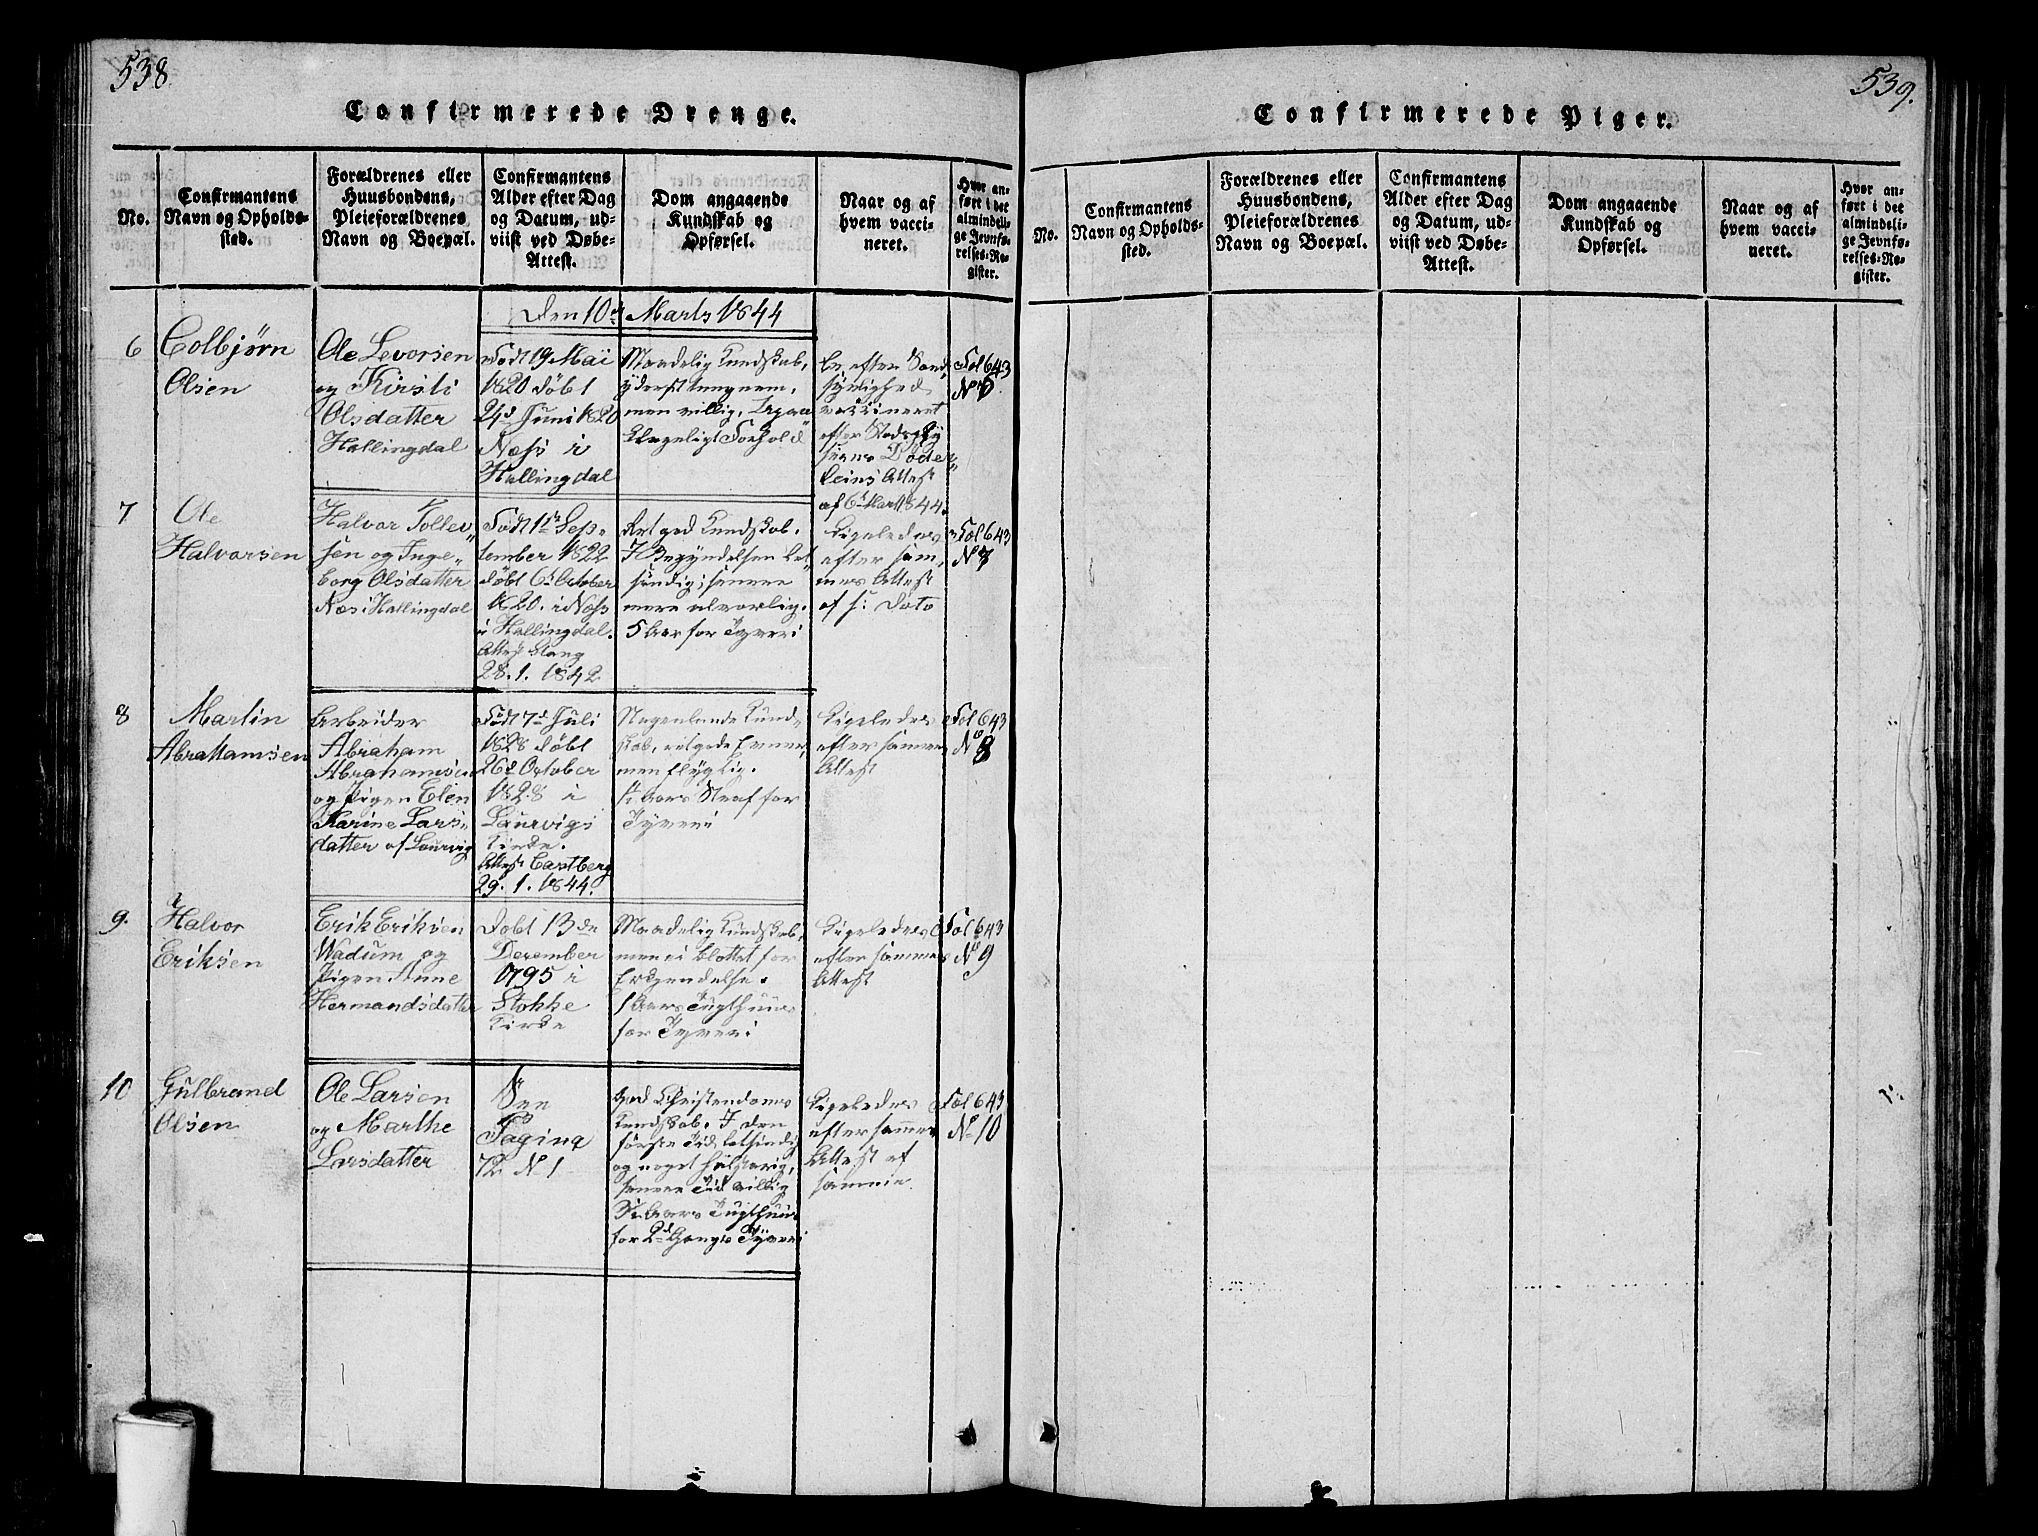 538.
Confirmerede Drenge.
No.
Confirmantens
Navn og Opholds-
sted.
Forældrenes eller
Huusbondens,
Pleieforældrenes
Navn og Boepæl.
Confirmantens
Alder efter Dag
og Datum, ud-
viist ved Døbe-
Attest.
Dom angaaende
Kundskab og
Opførsel.
Naar og af
hvem vacci-
neret.
Hvor an-
ført i det
almindeli-
ge Jevnfø-
relses-Re-
gister.
Den 10de Marts 1844
6
Colbjørn
Olsen
Ole Levorsen
og Kirsti
Olsdatter
Hallingdal
Født 19 Mai
1820 døbt
24d Juni 1820
Næss i
Hallingdal
Maadelig Kundskab,
yderst tungnem,
men villig,
klageligt Forhold
er efter Sand
synlighed
vaccineret
efter Stadsphy
sicus Døder
leins Attest
af 6 Mart 1844.
Fol 643
No 6
7
Ole
Halvorsen
Halvor Tollev
sen og Inge
borg Olsdatter
Næs i Hallingdal
Født 11te Sep
tember 1822
døbt 6d October
1820. i Næss
i Hallingdal.
Attest
28. 1. 1842
Ret god Kundskab.
I Begyndelsen let
sindig; senere
mere alvorlig.
5 Aar for Tyveri
Ligeledes
efter sam
mes Attest
af s: Dato
Fol 643
No 7
8
Martin
Abrahamsen
Arbeider
Abraham
Abrahamsen
og Pigen Elen
Karine Lars
datter af Laurvig
Født 7d Juli
1828 døbt
26d October
1828 i
Laurvigs
Kirke.
Attest Castberg
29. 1. 1844.
Nogenlunde Kund
skab, gode Evner,
men flygtig.
Aars Straf for
Tyveri
Ligeledes
efter samme
Attest
Fol 643
No 8
9.
Halvor
Eriksen
Erik Eriksen
Wadum og
Pigen Anne
Hermandsdatter
Døbt 13de
December
1795 i
Stokke
Kirke
Maadelig Kundskab,
men ei blottet for
Erkjendelse.
Aars Tugthuus
for Tyveri
Ligeledes
efter sammes
Attest
Fol 643
No 9
10
Gulbrand
Olsen
Ole Larsen
og Marthe
Larsdatter
See
Pagina
72 No 1
God Christendoms
Kundskab. I den
første Tid letsindig
og noget
senere Tid villig
Aars Tugthuus
for 2d Gangs Tyveri
Ligeledes
efter samme
Attest af
samme.
Fol 643
No 10
539.
Confirmerede Piger.
No.
Confirmantens
Navn og Opholds-
sted.
Forældrenes eller
Huusbondens,
Pleieforældrenes
Navn og Boepæl.
Confirmantens
Alder efter Dag
og Datum, ud-
viist ved Døbe-
Attest.
Dom angaaende
Kundskab og
Opførsel.
Naar og af
hvem vacci-
neret.
Hvor an-
ført i det
almindeli-
ge Jevnfø-
relses-Re-
gister.